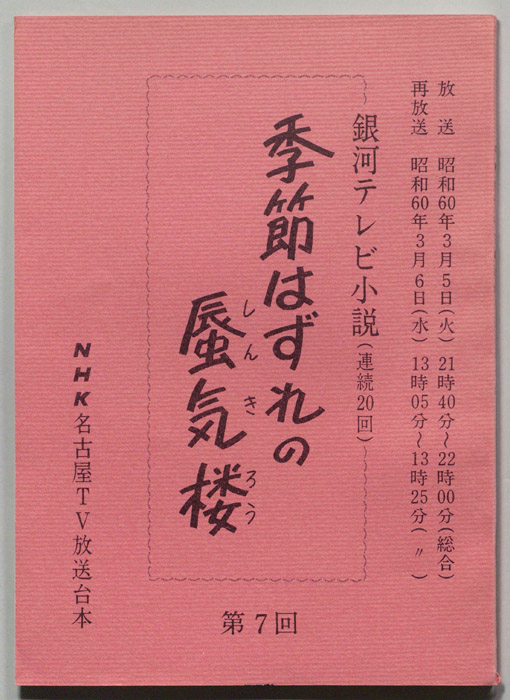 放送 昭和60年3月5日(火) 21時40分〜22時00分(総合)
再放送 昭和60年3月6日(水) 13時05分〜13時25分(〃)
銀河テレビ小説(連続20回)
季節はずれの
蜃気楼
しんきろう
NHK名古屋TV放送台本
第7回